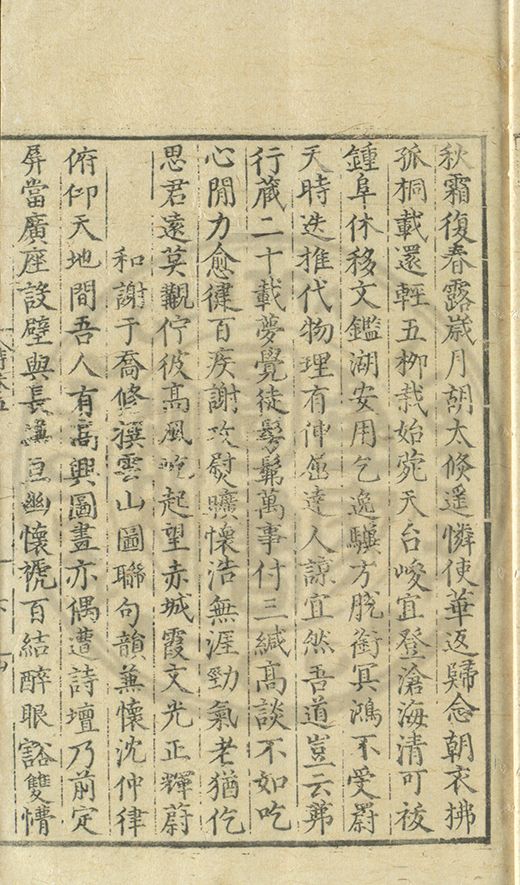 秋霜復春露歲月朝大倐遥憐使華返歸念朝衣拂
孤桐載還輕五柳栽始菀天台峻宜登滄海清可祓
鍾阜休移文鑑湖安用乞逸驥方脫銜冥鴻不受罻
天時迭推代物理有伸屈達人諒宜然吾道豈云茀
行藏二十載夢覺徒髣髴萬事付三緘高談不如吃
心閒力愈健百疾謝攻熨曠懷浩無涯勁氣老猶仡
思君遠莫覯佇彼高風吮起望赤城霞文光正輝蔚
和謝于喬修撰雲山圖聯句韻兼懷沈仲律
俯仰天地間吾人有高興圖畫亦偶遭詩壇乃前定
屏當廣座設壁與長謙亘幽懷褫百結醉眼豁雙懵